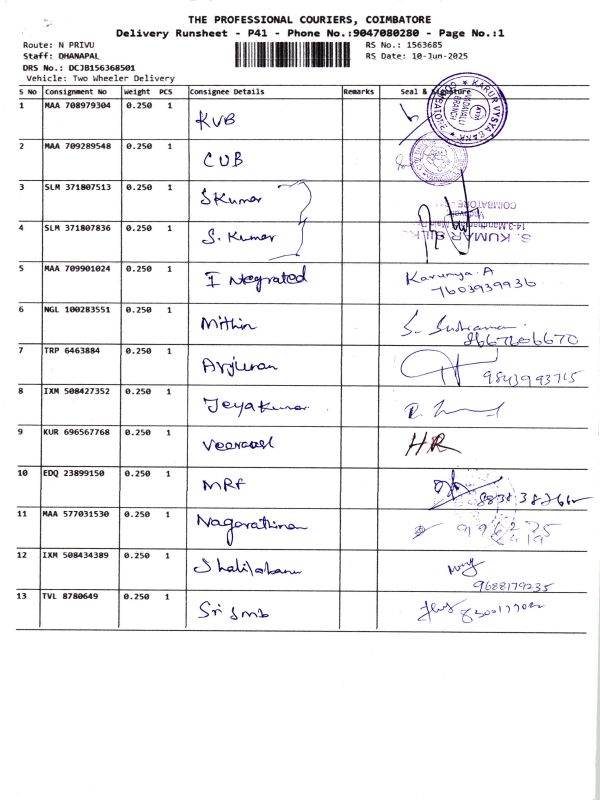 THE PROFESSIONAL COURIERS, COIMBATORE
Delivery Runsheet - P41 - Phone No.:9047080280 - Page No.:1
Route: N PRIVU
RS No.: 1563685
Staff: DHANAPAL
RS Date: 10-Jun-2025
DRS No.: DCJB156368501
Vehicle: Two Wheeler Delivery
S No Consignment No Weight PCS Consignee Details Remarks Seal & Signature
1 MAA 708979304 0.250 1 KVB
KARUR VYSYA BANK
VADAVALLI BRANCH
2 MAA 709289548 0.250 1 CUB
3 SLM 371807513 0.250 1 S Kumar
4 SLM 371807836 0.250 1 S. Kumar
S. KUMAR SILK
COIMBATORE
5 MAA 709901024 0.250 1 Integrated Karunya. A
7603939936
6 NGL 100283551 0.250 1 Mithin
8667606670
7 TRP 6463884 0.250 1 Arjunan 9843993715
8 IXM 508427352 0.250 1 Jeyakumar
9 KUR 696567768 0.250 1 HR
10 EDQ 23899150 0.250 1 MRF
11 MAA 577031530 0.250 1 Nagarathinam
12 IXM 508434389 0.250 1
9688179235
13 TVL 8780649 0.250 1 Sri